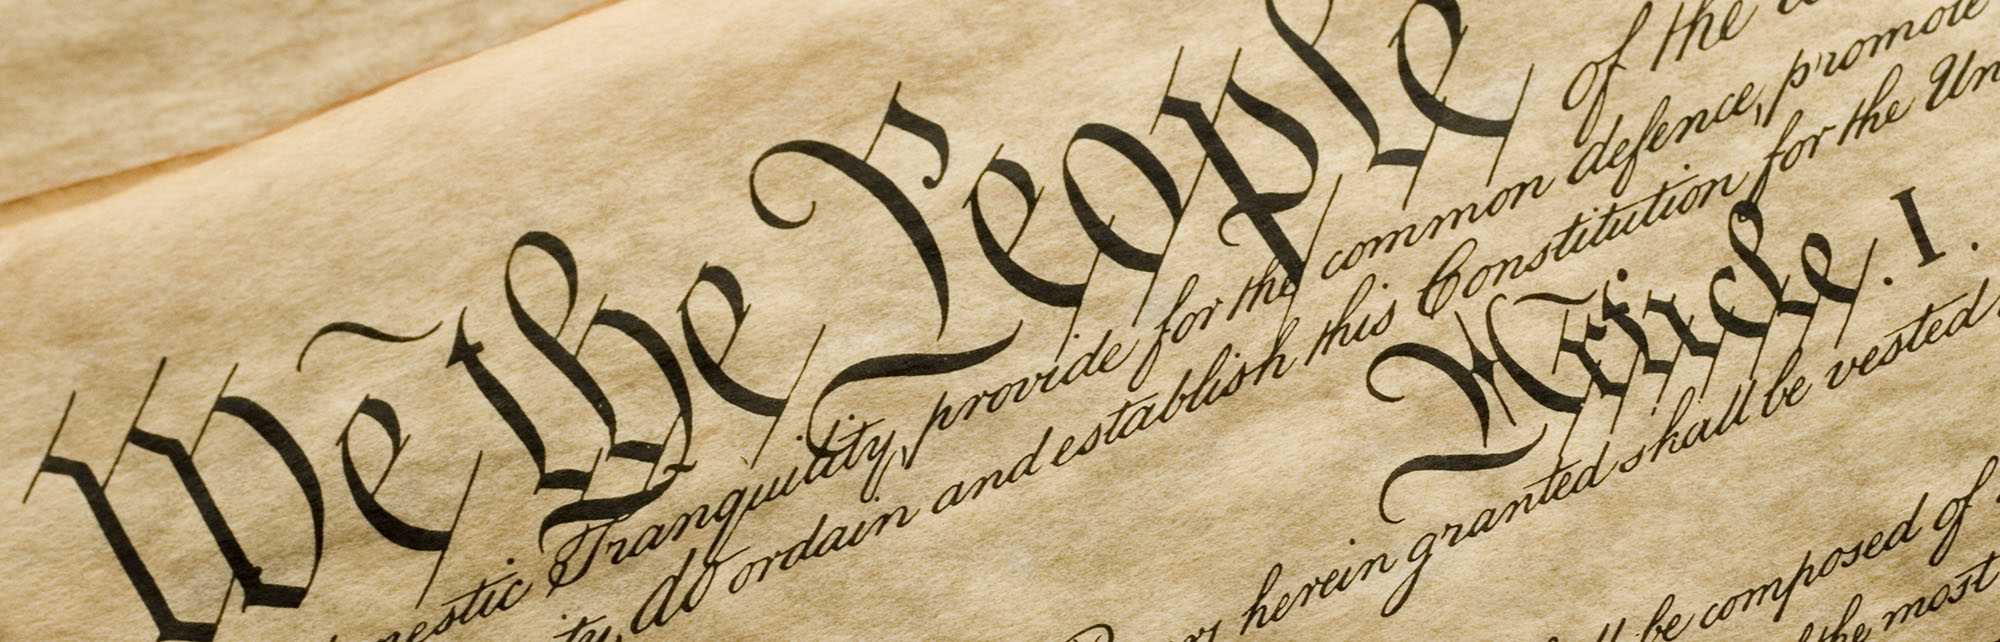 We the People of the
mestic Tranquility, provide for the common defence, promote
ty, do ordain and establish this Constitution for the Un
Article. I.
herein granted shall be vested
ll be composed of
the most